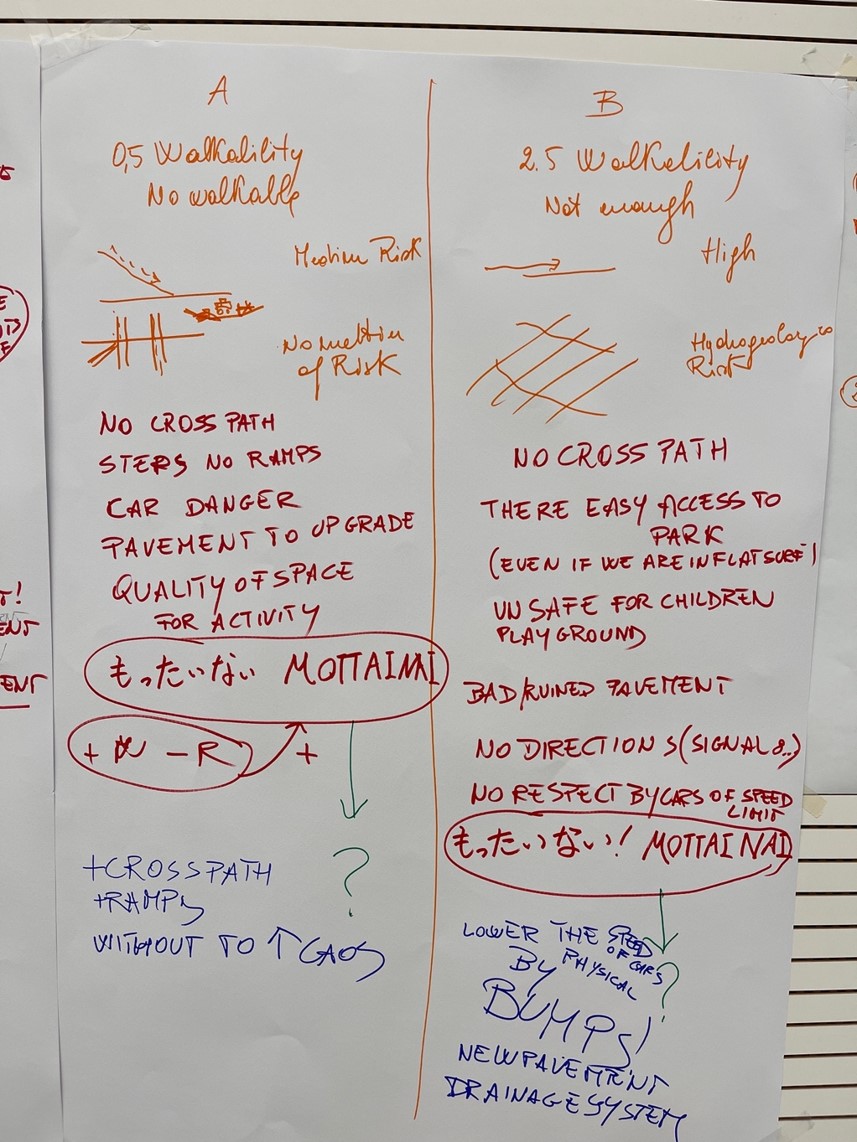 A
0,5 Walkability
No walkable
Medium Risk
No mettion
of Risk
NO CROSS PATH
STEPS NO RAMPS
CAR DANGER
PAVEMENT TO UPGRADE
QUALITY OF SPACE
FOR ACTIVITY
もったいない MOTTAINAI
+ W - R
+
?
+CROSSPATH
+RAMPS
WITHOUT TO ↑ CAOS
B
2.5 Walkability
Not enough
High
Hydrogeologico
Risk
NO CROSS PATH
THERE EASY ACCESS TO
PARK
(EVEN IF WE ARE IN FLAT SURF)
UNSAFE FOR CHILDREN
PLAYGROUND
BAD/RUINED PAVEMENT
NO DIRECTIONS (SIGNAL &..)
NO RESPECT BY CARS OF SPEED
LIMIT
もったいない! MOTTAINAI
?
LOWER THE SPEED
OF CARS
BY PHYSICAL
BUMPS!
NEW PAVEMENT
DRAINAGE SYSTEM
ENT